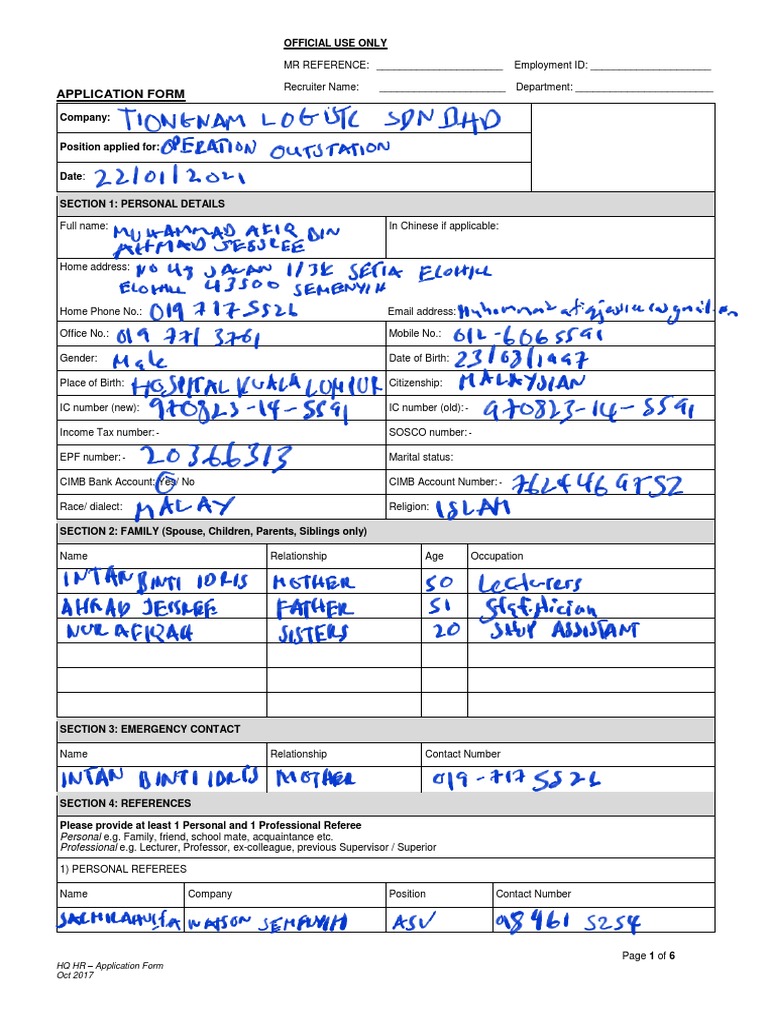 OFFICIAL USE ONLY
MR REFERENCE: ______________________ Employment ID: ______________________
Recruiter Name: ______________________ Department: ________________________
APPLICATION FORM
Company: TIONGNAM LOGISTC SDN BHD
Position applied for: OPERATION OUTSTATION
Date: 22/01/2021
SECTION 1: PERSONAL DETAILS
Full name: MUHAMMAD AFIQ BIN In Chinese if applicable:
AHMAD JESSREE
Home address: NO 43 JALAN 1/3K SETIA ECOHILL
ECOHILL 43500 SEMENYIH
Home Phone No.: 019 717 5526 Email address:
Office No.: 019 771 3761 Mobile No.: 012-606 5591
Gender: Male Date of Birth: 23/08/1997
Place of Birth: HOSPITAL KUALA LUMPUR Citizenship: MALAYSIAN
IC number (new): 970823-14-5591 IC number (old): - 970823-14-5591
Income Tax number: - SOSCO number: -
EPF number: - 20366313 Marital status:
CIMB Bank Account: Yes/ No CIMB Account Number: - 7624469752
Race/ dialect: MALAY Religion: ISLAM
SECTION 2: FAMILY (Spouse, Children, Parents, Siblings only)
Name Relationship Age Occupation
INTAN BINTI IDRIS MOTHER 50 Lecturers
AHMAD JESSREE FATHER 51
NUR AFIQAH SISTERS 20 SHOP ASSISTANT
SECTION 3: EMERGENCY CONTACT
Name Relationship Contact Number
INTAN BINTI IDRIS MOTHER 019-717 5526
SECTION 4: REFERENCES
Please provide at least 1 Personal and 1 Professional Referee
Personal e.g. Family, friend, school mate, acquaintance etc.
Professional e.g. Lecturer, Professor, ex-colleague, previous Supervisor / Superior
1) PERSONAL REFEREES
Name Company Position Contact Number
WATSON SEMENYIH ASV 98461 5254
Page 1 of 6
HQ HR – Application Form
Oct 2017